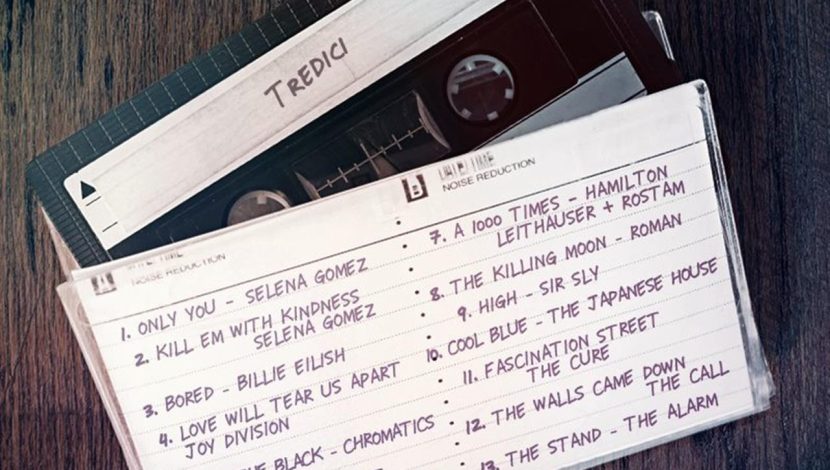 TREDICI
NOISE REDUCTION
NOISE REDUCTION
1. ONLY YOU - SELENA GOMEZ
2. KILL EM WITH KINDNESS
SELENA GOMEZ
3. BORED - BILLIE EILISH
4. LOVE WILL TEAR US APART
JOY DIVISION
BLACK - CHROMATICS
7. A 1000 TIMES - HAMILTON
LEITHAUSER + ROSTAM
8. THE KILLING MOON - ROMAN
9. HIGH - SIR SLY
10. COOL BLUE - THE JAPANESE HOUSE
11. FASCINATION STREET
THE CURE
12. THE WALLS CAME DOWN
THE CALL
13. THE STAND - THE ALARM